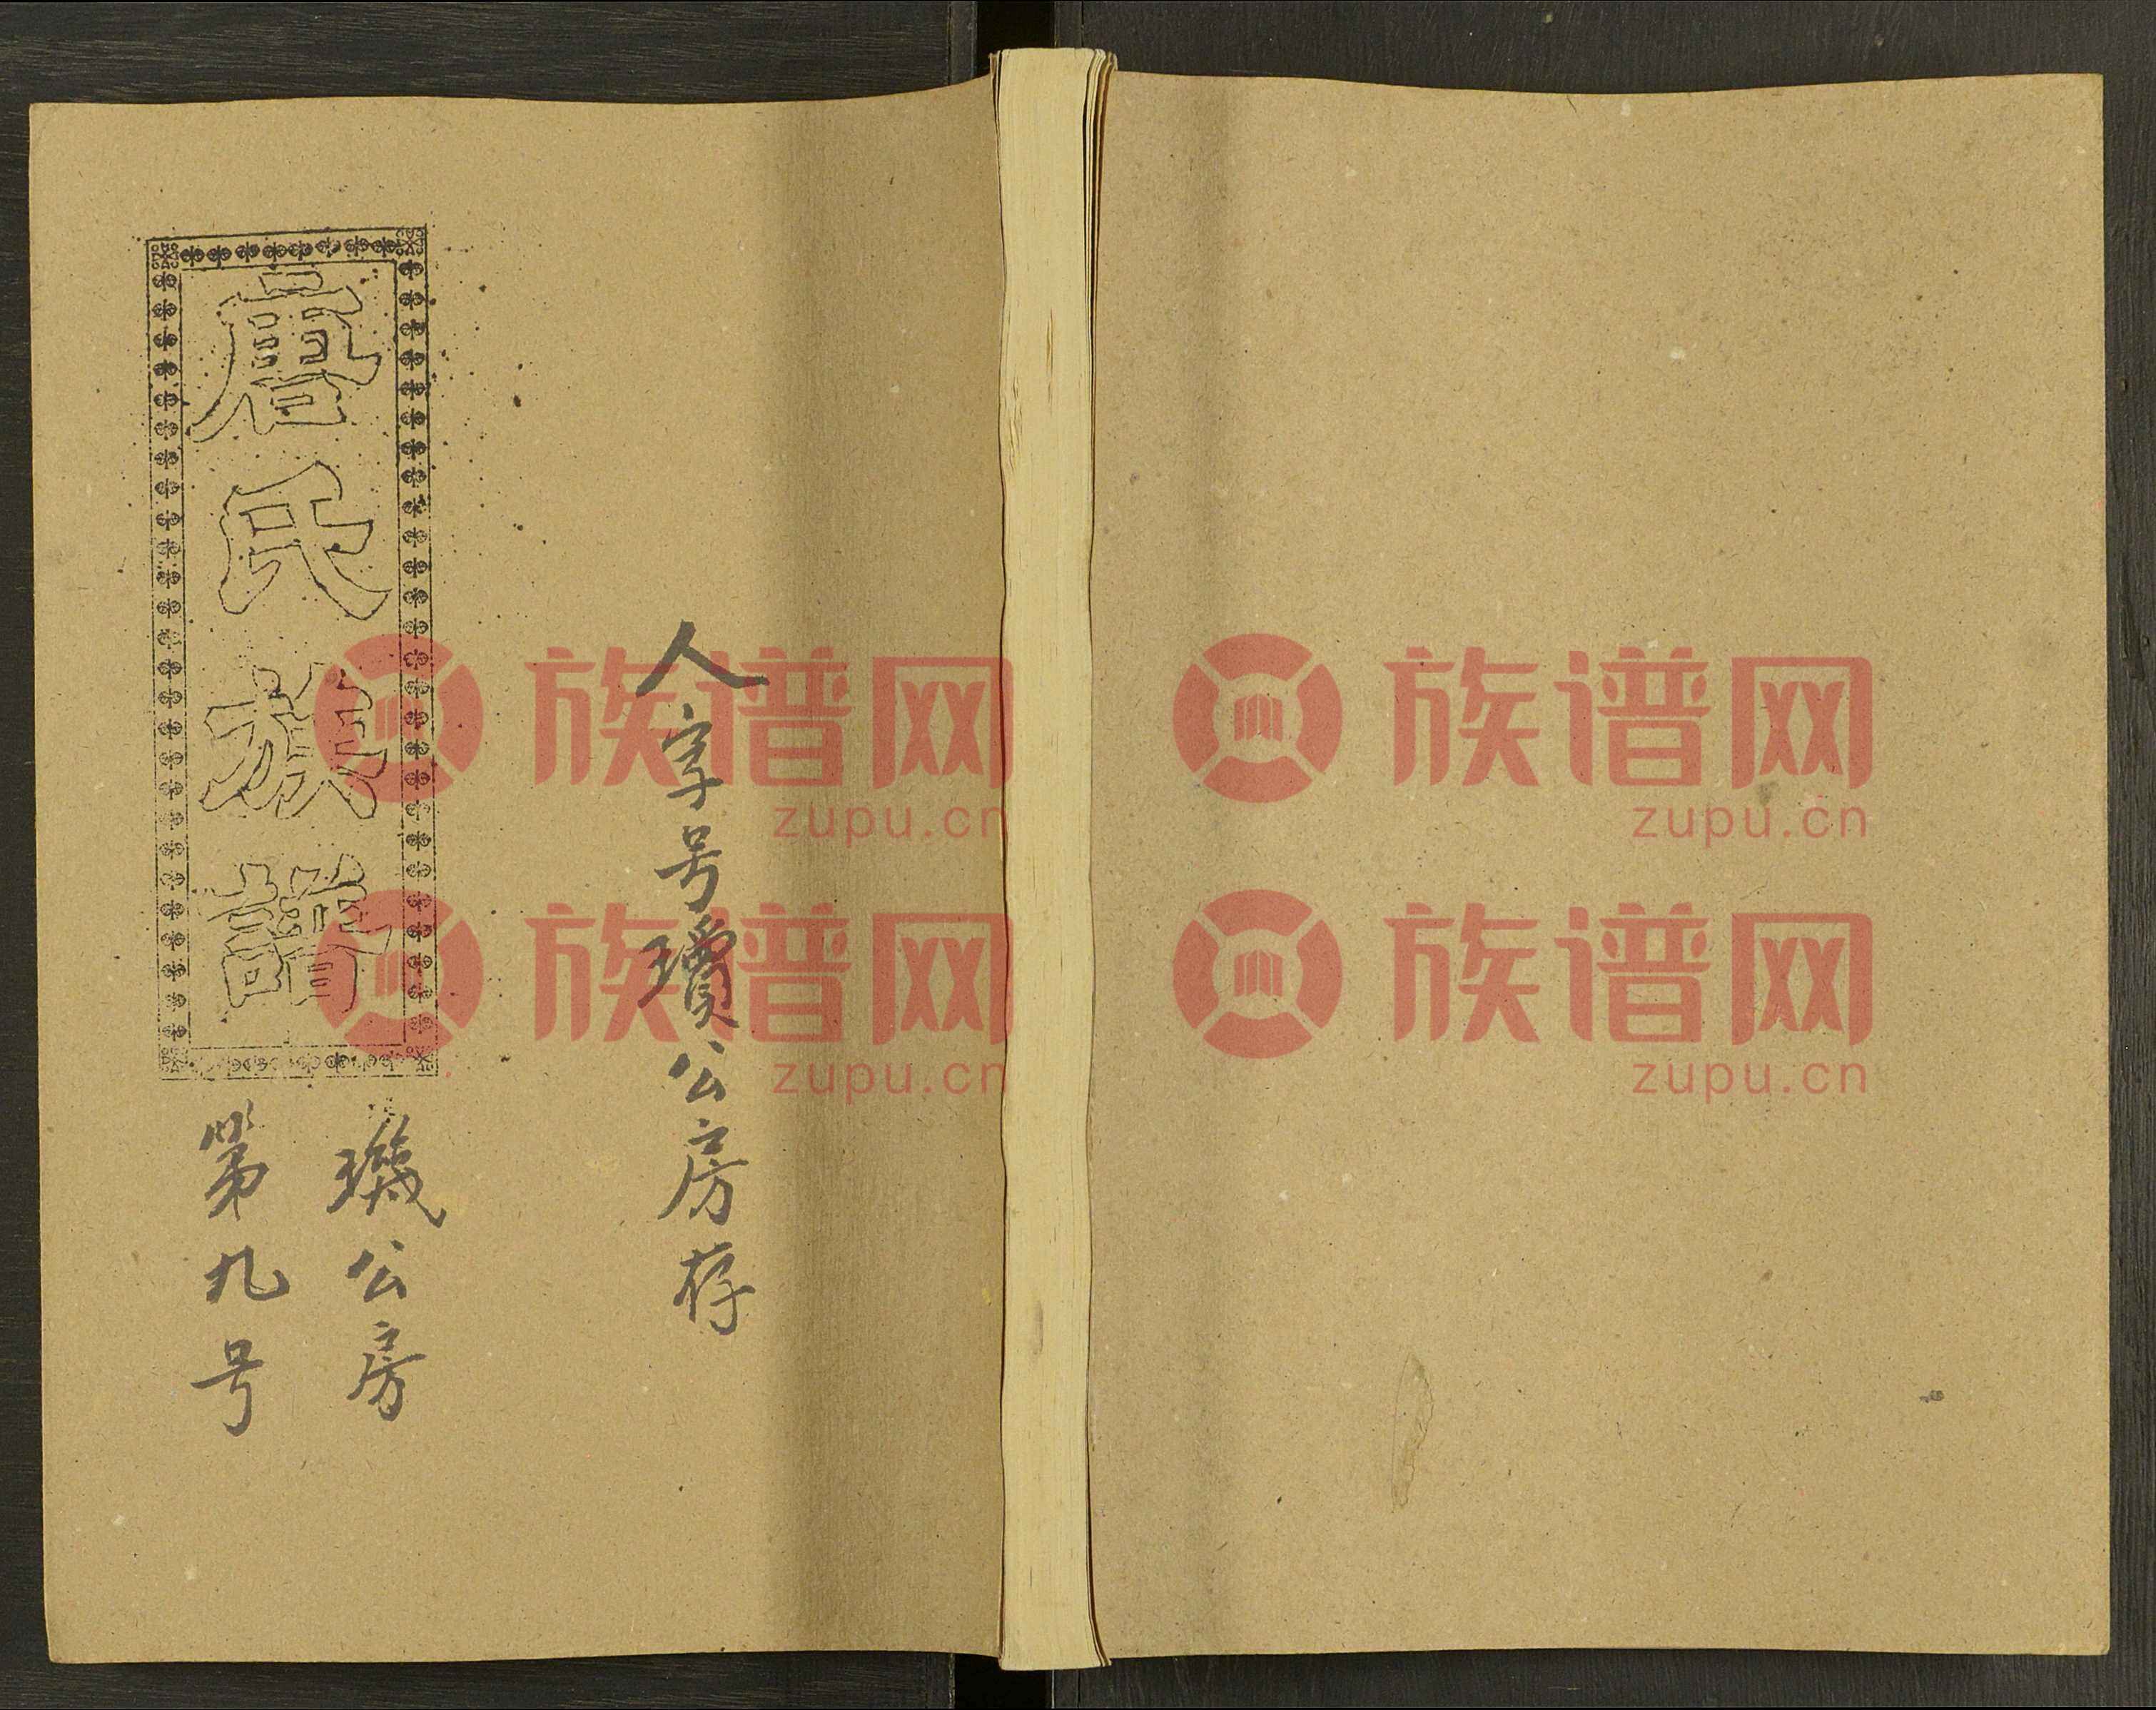 人字号瓊公房存
唐氏族譜
璣公房
第九号
族谱网
zupu.cn
族谱网
zupu.cn
族谱网
zupu.cn
族谱网
zupu.cn